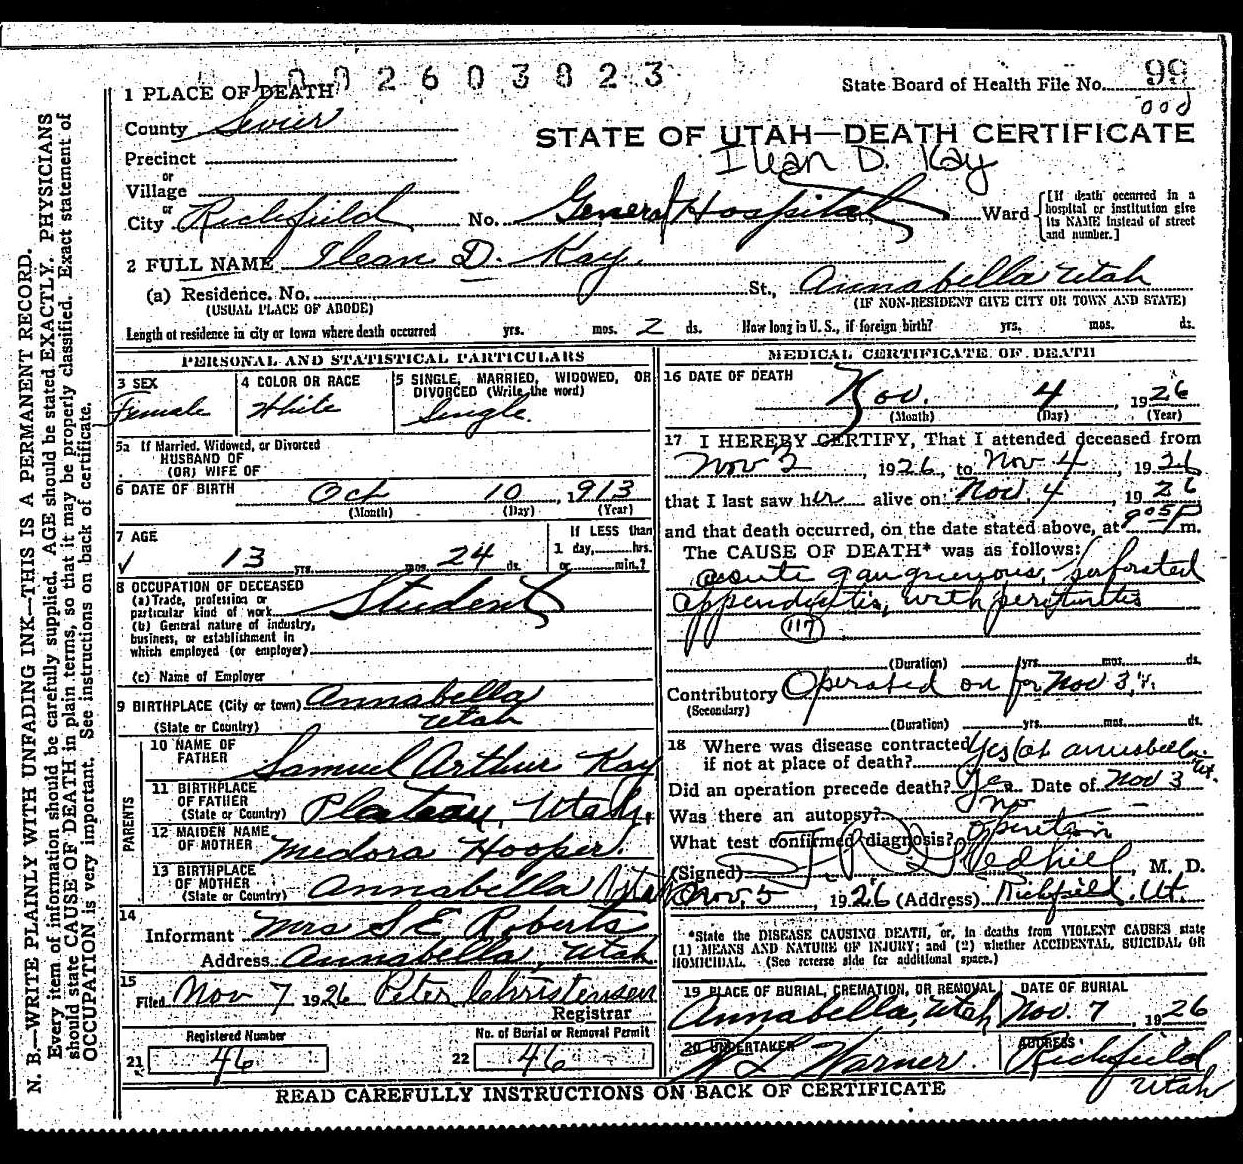 1002603823
State Board of Health File No. 99
1 PLACE OF DEATH
County Sevier
STATE OF UTAH—DEATH CERTIFICATE
Ilean D. Kay
Precinct
or
Village
or
City Richfield No. General Hospital Ward [If death occurred in a hospital or institution give its NAME instead of street and number.]
2 FULL NAME Ilean D. Kay.
(a) Residence. No. St., Annabella Utah
(USUAL PLACE OF ABODE) (IF NON-RESIDENT GIVE CITY OR TOWN AND STATE)
Length of residence in city or town where death occurred yrs. mos. 2 ds. How long in U. S., if foreign birth? yrs. mos. ds.
PERSONAL AND STATISTICAL PARTICULARS
3 SEX
Female
4 COLOR OR RACE
White
5 SINGLE, MARRIED, WIDOWED, OR
DIVORCED (Write the word)
Single.
5a If Married, Widowed, or Divorced
HUSBAND OF
(OR) WIFE OF
6 DATE OF BIRTH Oct 10, 1913
(Month) (Day) (Year)
7 AGE
13 yrs. mos. 24 ds.
If LESS than
1 day, hrs.
or min.?
8 OCCUPATION OF DECEASED
(a) Trade, profession or
particular kind of work Student
(b) General nature of industry,
business, or establishment in
which employed (or employer)
(c) Name of Employer
9 BIRTHPLACE (City or town) Annabella
(State or Country) Utah
PARENTS
10 NAME OF
FATHER Samuel Arthur Kay
11 BIRTHPLACE
OF FATHER
(State or Country) Plateau, Utah.
12 MAIDEN NAME
OF MOTHER Medora Hooper.
13 BIRTHPLACE
OF MOTHER
(State or Country) Annabella Utah
14
Informant Mrs S E Roberts
Address Annabella, Utah
15
Filed Nov 7 1926 Peter Christensen
Registrar
Registered Number
21 46
No. of Burial or Removal Permit
22 46
MEDICAL CERTIFICATE OF DEATH
16 DATE OF DEATH
Nov. 4, 1926
(Month) (Day) (Year)
17 I HEREBY CERTIFY, That I attended deceased from
Nov 3, 1926, to Nov 4, 1926
that I last saw her alive on Nov. 4, 1926
and that death occurred, on the date stated above, at 905P m.
The CAUSE OF DEATH* was as follows:
acute gangrenous, perforated
appendicitis, with peritonitis
117
(Duration) yrs. mos. ds.
Contributory Operated on for Nov 3,
(Secondary)
(Duration) yrs. mos. ds.
18 Where was disease contracted
if not at place of death? Yes (at annabella. Ut.
Did an operation precede death? Yes Date of Nov 3
Was there an autopsy? no
What test confirmed diagnosis? operation
(Signed) , M. D.
Nov. 5, 1926 (Address) Richfield, Ut.
*State the DISEASE CAUSING DEATH, or, in deaths from VIOLENT CAUSES state
(1) MEANS AND NATURE OF INJURY; and (2) whether ACCIDENTAL, SUICIDAL OR
HOMICIDAL. (See reverse side for additional space.)
19 PLACE OF BURIAL, CREMATION, OR REMOVAL
Annabella, Utah
DATE OF BURIAL
Nov. 7, 1926
20 UNDERTAKER
Warner.
ADDRESS
Richfield
Utah
READ CAREFULLY INSTRUCTIONS ON BACK OF CERTIFICATE
N. B.—WRITE PLAINLY WITH UNFADING INK—THIS IS A PERMANENT RECORD.
Every item of information should be carefully supplied. AGE should be stated EXACTLY. PHYSICIANS
should state CAUSE OF DEATH in plain terms, so that it may be properly classified. Exact statement of
OCCUPATION is very important. See instructions on back of certificate.